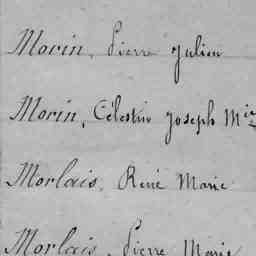 Morin, Pierre Julien
Morin, Célestin Joseph Mie
Morlais, René Marie
Morlais, Pierre Marie